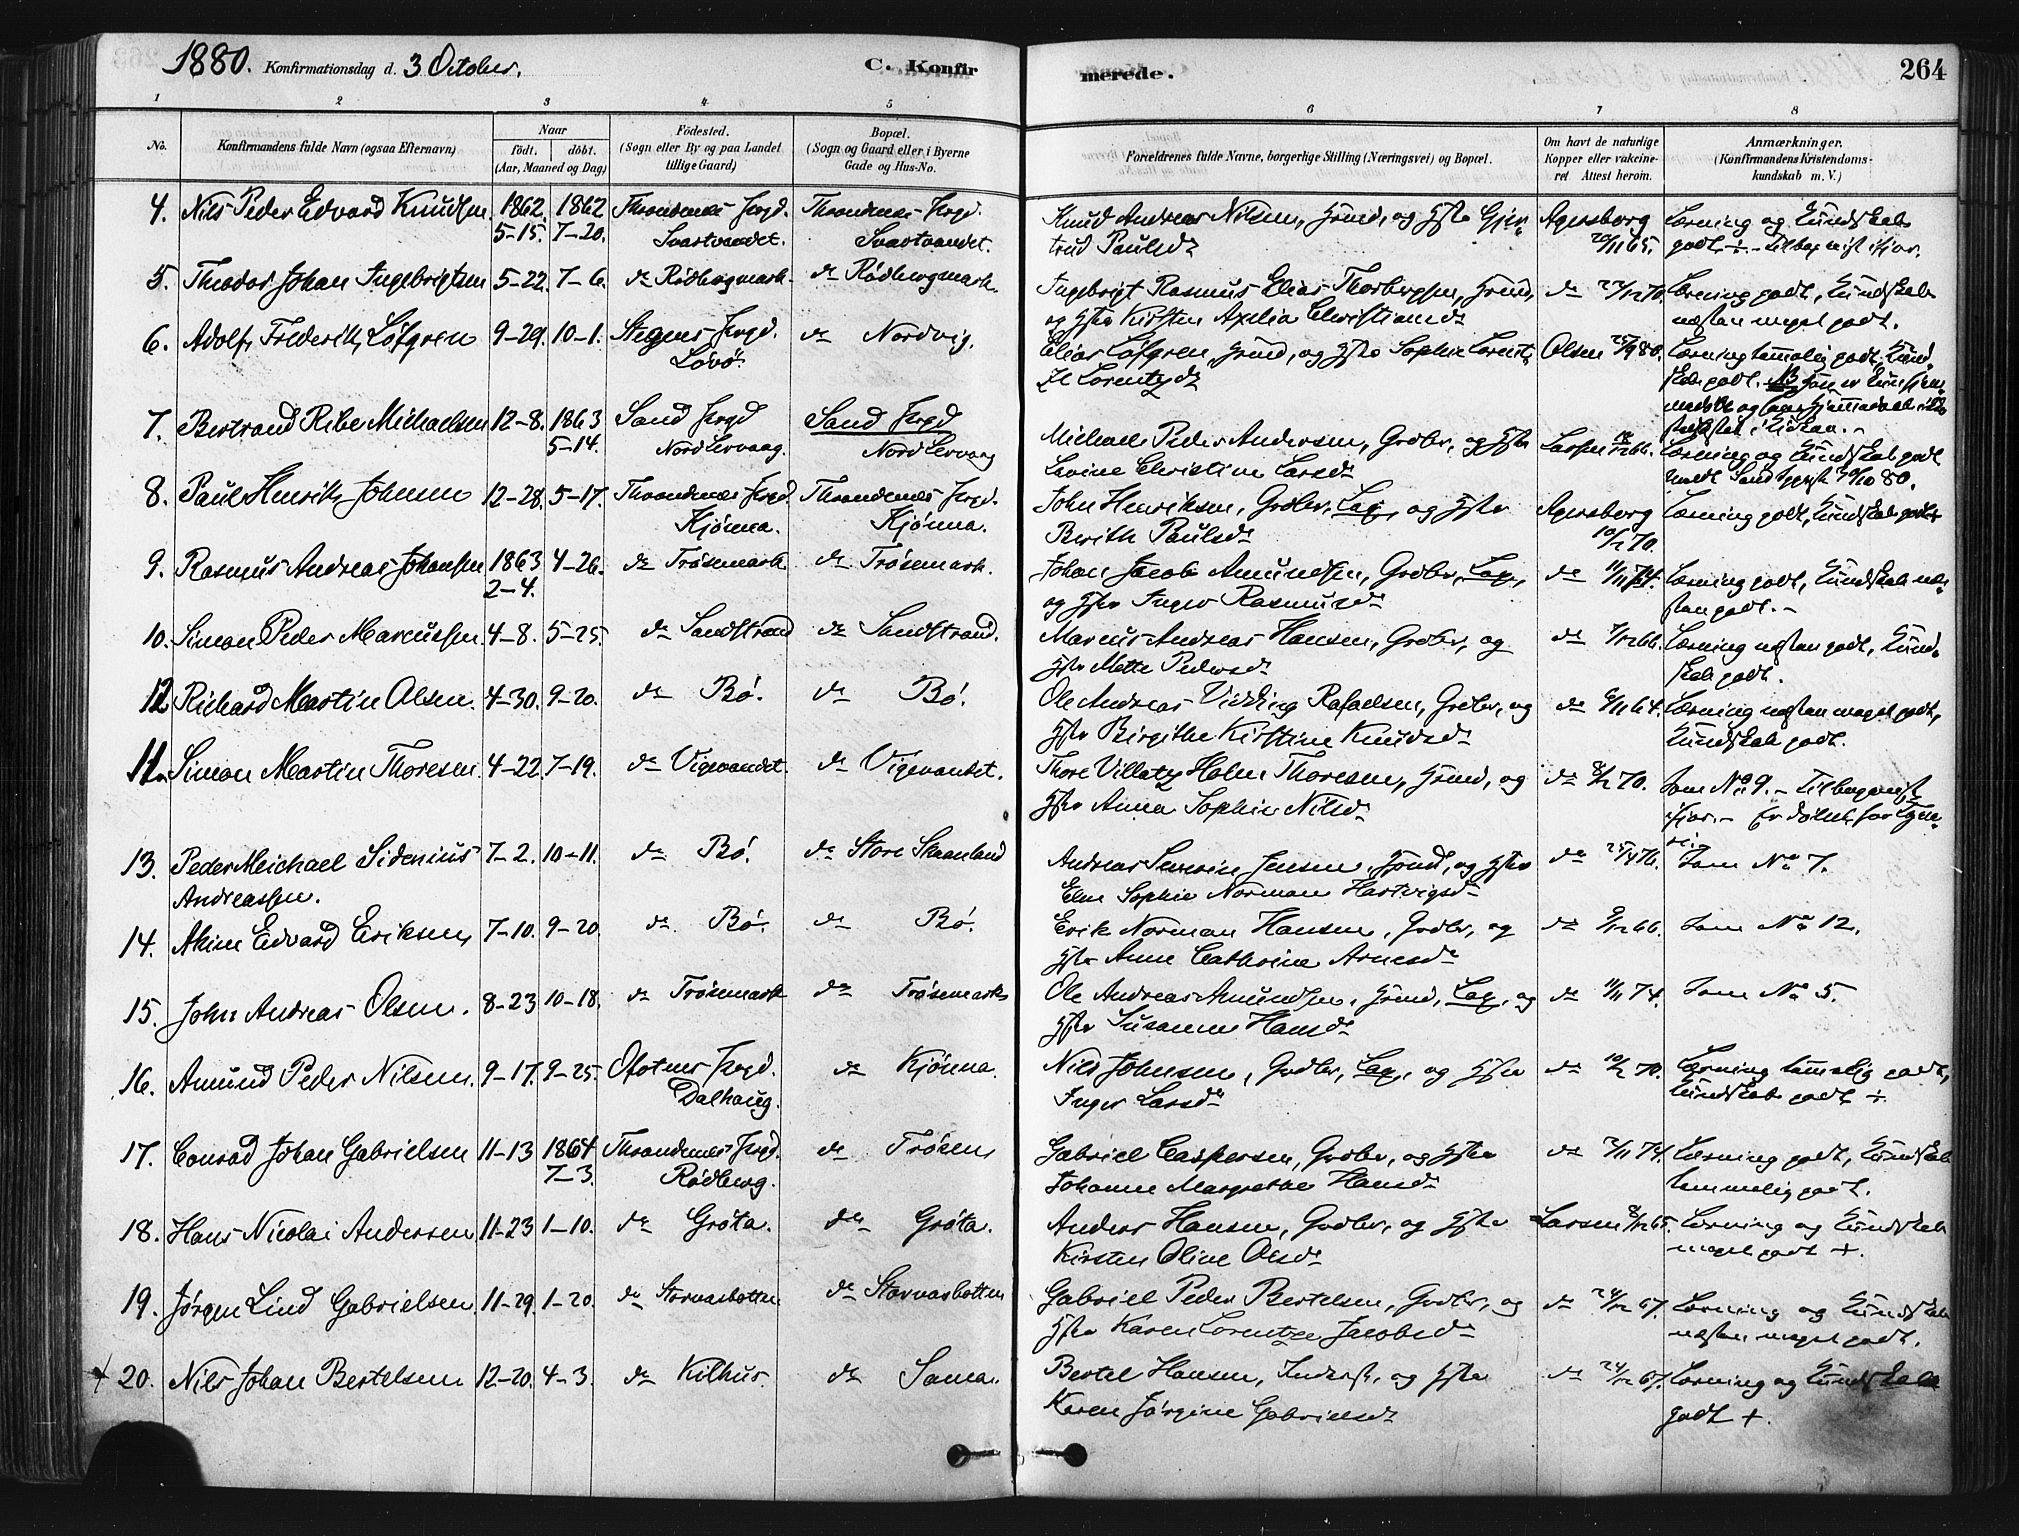 1880. Konfirmationsdag d. 3 October. C. Konfir merede. 264
1 2 3 4 5 6 7 8
No. Konfirmandens fulde Navn (ogsaa Efternavn) Naar födt. döbt. (Aar, Maaned og Dag) Födested. (Sogn eller By og paa Landet tillige Gaard) Bopæl. (Sogn og Gaard eller i Byerne Gade og Hus-No. Forældrenes fulde Navne, borgerlige Stilling (Næringsvei) og Bopæl. Om havt de naturlige Kopper eller vakcineret. Attest herom. Anmærkninger. (Konfirmandens Kristendomskundskab m. V.)
4. Nils Peder Edvard Knudsen 1862 5-15. 1862 7-20. Throndenes Prgd. Svartvandet. Throndenes Prgd. Svartvandet. Knud Andreas Nilsen, Grmd, og Hstr Gjertrud Paulsdr Agersborg 20/11 65. Læsning og Kundskab godt +
5. Theodor Johan Ingebrigtsen 5-22. 7-6. do Rödbergmark. do Rödbergmark. Ingebrigt Rasmus Elias Thorbergsen, Grmd, og Hstr Kirsten Axelia Christiansdr do 70. Læsning godt, Kundskab næsten meget godt.
6. Adolf Frederik Löfgren 9-29. 10-1. Stegens Prgd. Lövö. do Nordvig. Elias Löfgren, Grmd, og Hstr Sophie Lorentzdr Olsen 80. Læsning temmelig godt, Kundskab godt.
7. Bertrand Ribe Michaelsen 12-8. 1863 5-14. Sand Prgd Nord Lervaag. Sand Prgd Nord Lervaag Michael Peder Andersen, Grdbr, og Hstr Lavine Christine Larsdr Larsen 66. Læsning og Kundskab godt
8. Paul Henrik Johnsen 12-28. 5-17. Throndenes Prgd. Kjönna. Throndenes Prgd. Kjönna. John Henriksen, Grdbr, Lap, og Hstr Berith Paulsdr Agersborg 10/2 70. Læsning godt, Kundskab godt
9. Rasmus Andreas Johansen 1863 2-4. 4-26. do Trösemark do Trösemark. Johan Jacob Amundsen, Grdbr, Lap, og Hstr Inger Rasmusdr do 11/11 74. Læsning godt, Kundskab næsten godt. -
10. Simon Peder Marcussen 4-8. 5-25. do Sandstrand do Sandstrand. Marcus Andreas Hansen, Grdbr, og Hstr Mette Pedersdr do 7/12 66. Læsning næsten godt, Kundskab godt.
12 Richard Martin Olsen. 4-30. 9-20. do Bö. do Bö. Ole Andreas Vidding Rafaelsen, Grdbr, og Hstr Birgithe Kirstine Knudsdr do 64. Læsning næsten meget godt, Kundskab godt.
11. Simon Martin Thoresen. 4-22. 7-19. do Vigevandet. do Vigevandet. Thore Villatz Holm Thoresen, Grmd, og Hstr Anna Sophie Nilsdr do 8/12 70. Som No 9.
13. Peder Meichael Sidenius Andreassen. 7-2. 10-11. do Bö. do Store Skaanland Andreas Severin Jensen, Grmd, og Hstr Elen Sophie Norman Hartvigsdr do 25/4 76. Som No 7.
14. Akim Edvard Eriksen, 7-10. 9-20. do Bö. do Bö. Erik Norman Hansen, Grdbr, og Hstr Anne Cathrine Arnesdr do 9/12 66. Som No 12.
15. John Andreas Olsen. 8-23 10-18. do Trösemark do Trösemark Ole Andreas Amundsen, Grmd, Lap, og Hstr Susanne Hansdr do 11/11 74. Som No 5.
16. Amund Peder Nilsen. 9-17. 9-25. Ofotens Prgd. Dalhaug. do Kjönna. Nils Johnsen, Grdbr, Lap, og Hstr Inger Larsdr do 10/2 70. Læsning temmelig godt, Kundskab godt +
17. Conrad Johan Gabrielsen 11-13 1864 7-3. Throndenes Prgd. Rödberg. do Trösen, Gabriel Caspersen, Grdbr, og Hstr Johanne Margrethe Hansdr do 74. Læsning godt, Kundskab temmelig godt.
18. Hans Nicolai Andersen 11-23 1-10. do Gröta. do Gröta. Anders Hansen, Grdbr, og Hstr Kirsten Oline Olsdr Larsen 8/12 65. Læsning og Kundskab meget godt +.
19. Jörgen Lind Gabrielsen 11-29. 1-20. do Storvasbotten do Storvasbotten Gabriel Peder Bertelsen, Grdbr, og Hstr Karen Lorentze Jacobsdr do 24/12 67. Læsning og Kundskab næsten meget godt.
20. Nils Johan Bertelsen 12-20. 4-3. do Kilhus. do Sama. Bertel Hansen, Inderst, og Hstr Karen Jörgine Gabrielsdr do 24/12 67. Læsning og Kundskab godt +.